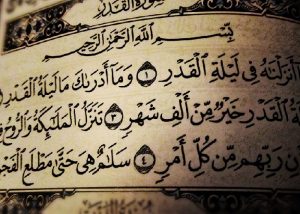 سُورَةُ الْقَدْرِ
بِسْمِ ٱللَّهِ ٱلرَّحْمَٰنِ ٱلرَّحِيمِ
أَنزَلْنَٰهُ فِى لَيْلَةِ ٱلْقَدْرِ ١ وَمَآ أَدْرَىٰكَ مَا لَيْلَةُ ٱلْقَدْرِ
ٱلْقَدْرِ خَيْرٌ مِّنْ أَلْفِ شَهْرٍ ٣ تَنَزَّلُ ٱلْمَلَٰٓئِكَةُ وَٱلرُّوحُ
رَبِّهِم مِّن كُلِّ أَمْرٍ ٤ سَلَٰمٌ هِىَ حَتَّىٰ مَطْلَعِ ٱلْفَجْ